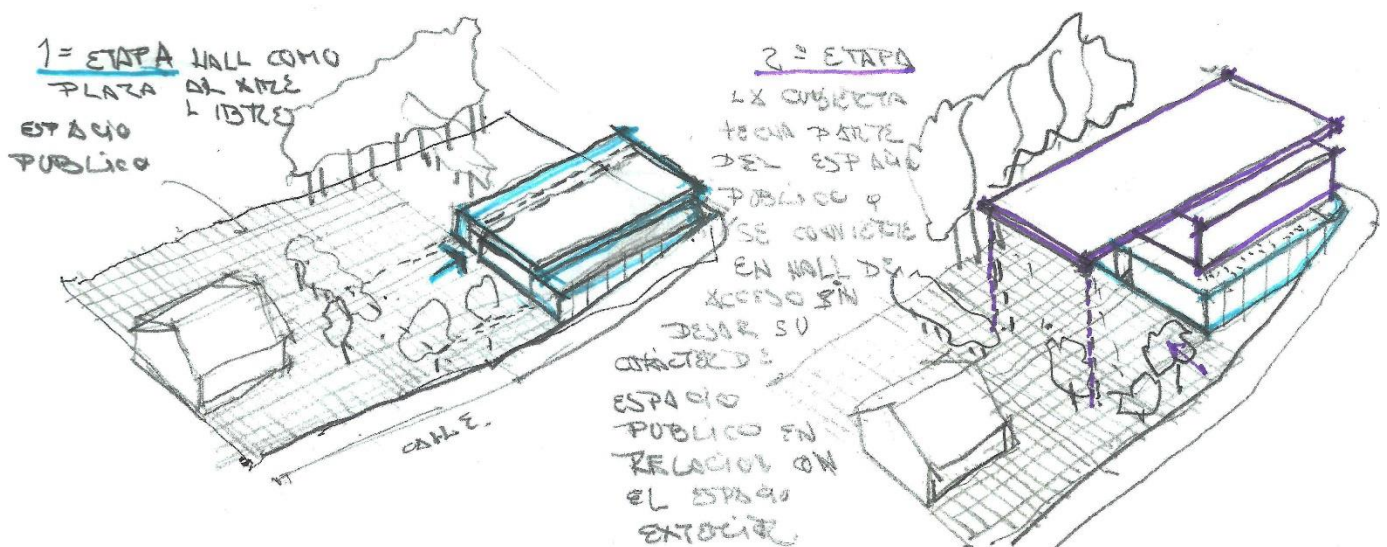 1ª ETAPA HALL COMO
PLAZA AL AIRE
LIBRE
ESPACIO
PUBLICO
CALLE.
2ª ETAPA
LA CUBIERTA
TECHA PARTE
DEL ESPACIO
PUBLICO Y
SE CONVIERTE
EN HALL DE
ACCESO SIN
DEJAR SU
CARÁCTER DE
ESPACIO
PUBLICO EN
RELACION CON
EL ESPACIO
EXTERIOR.